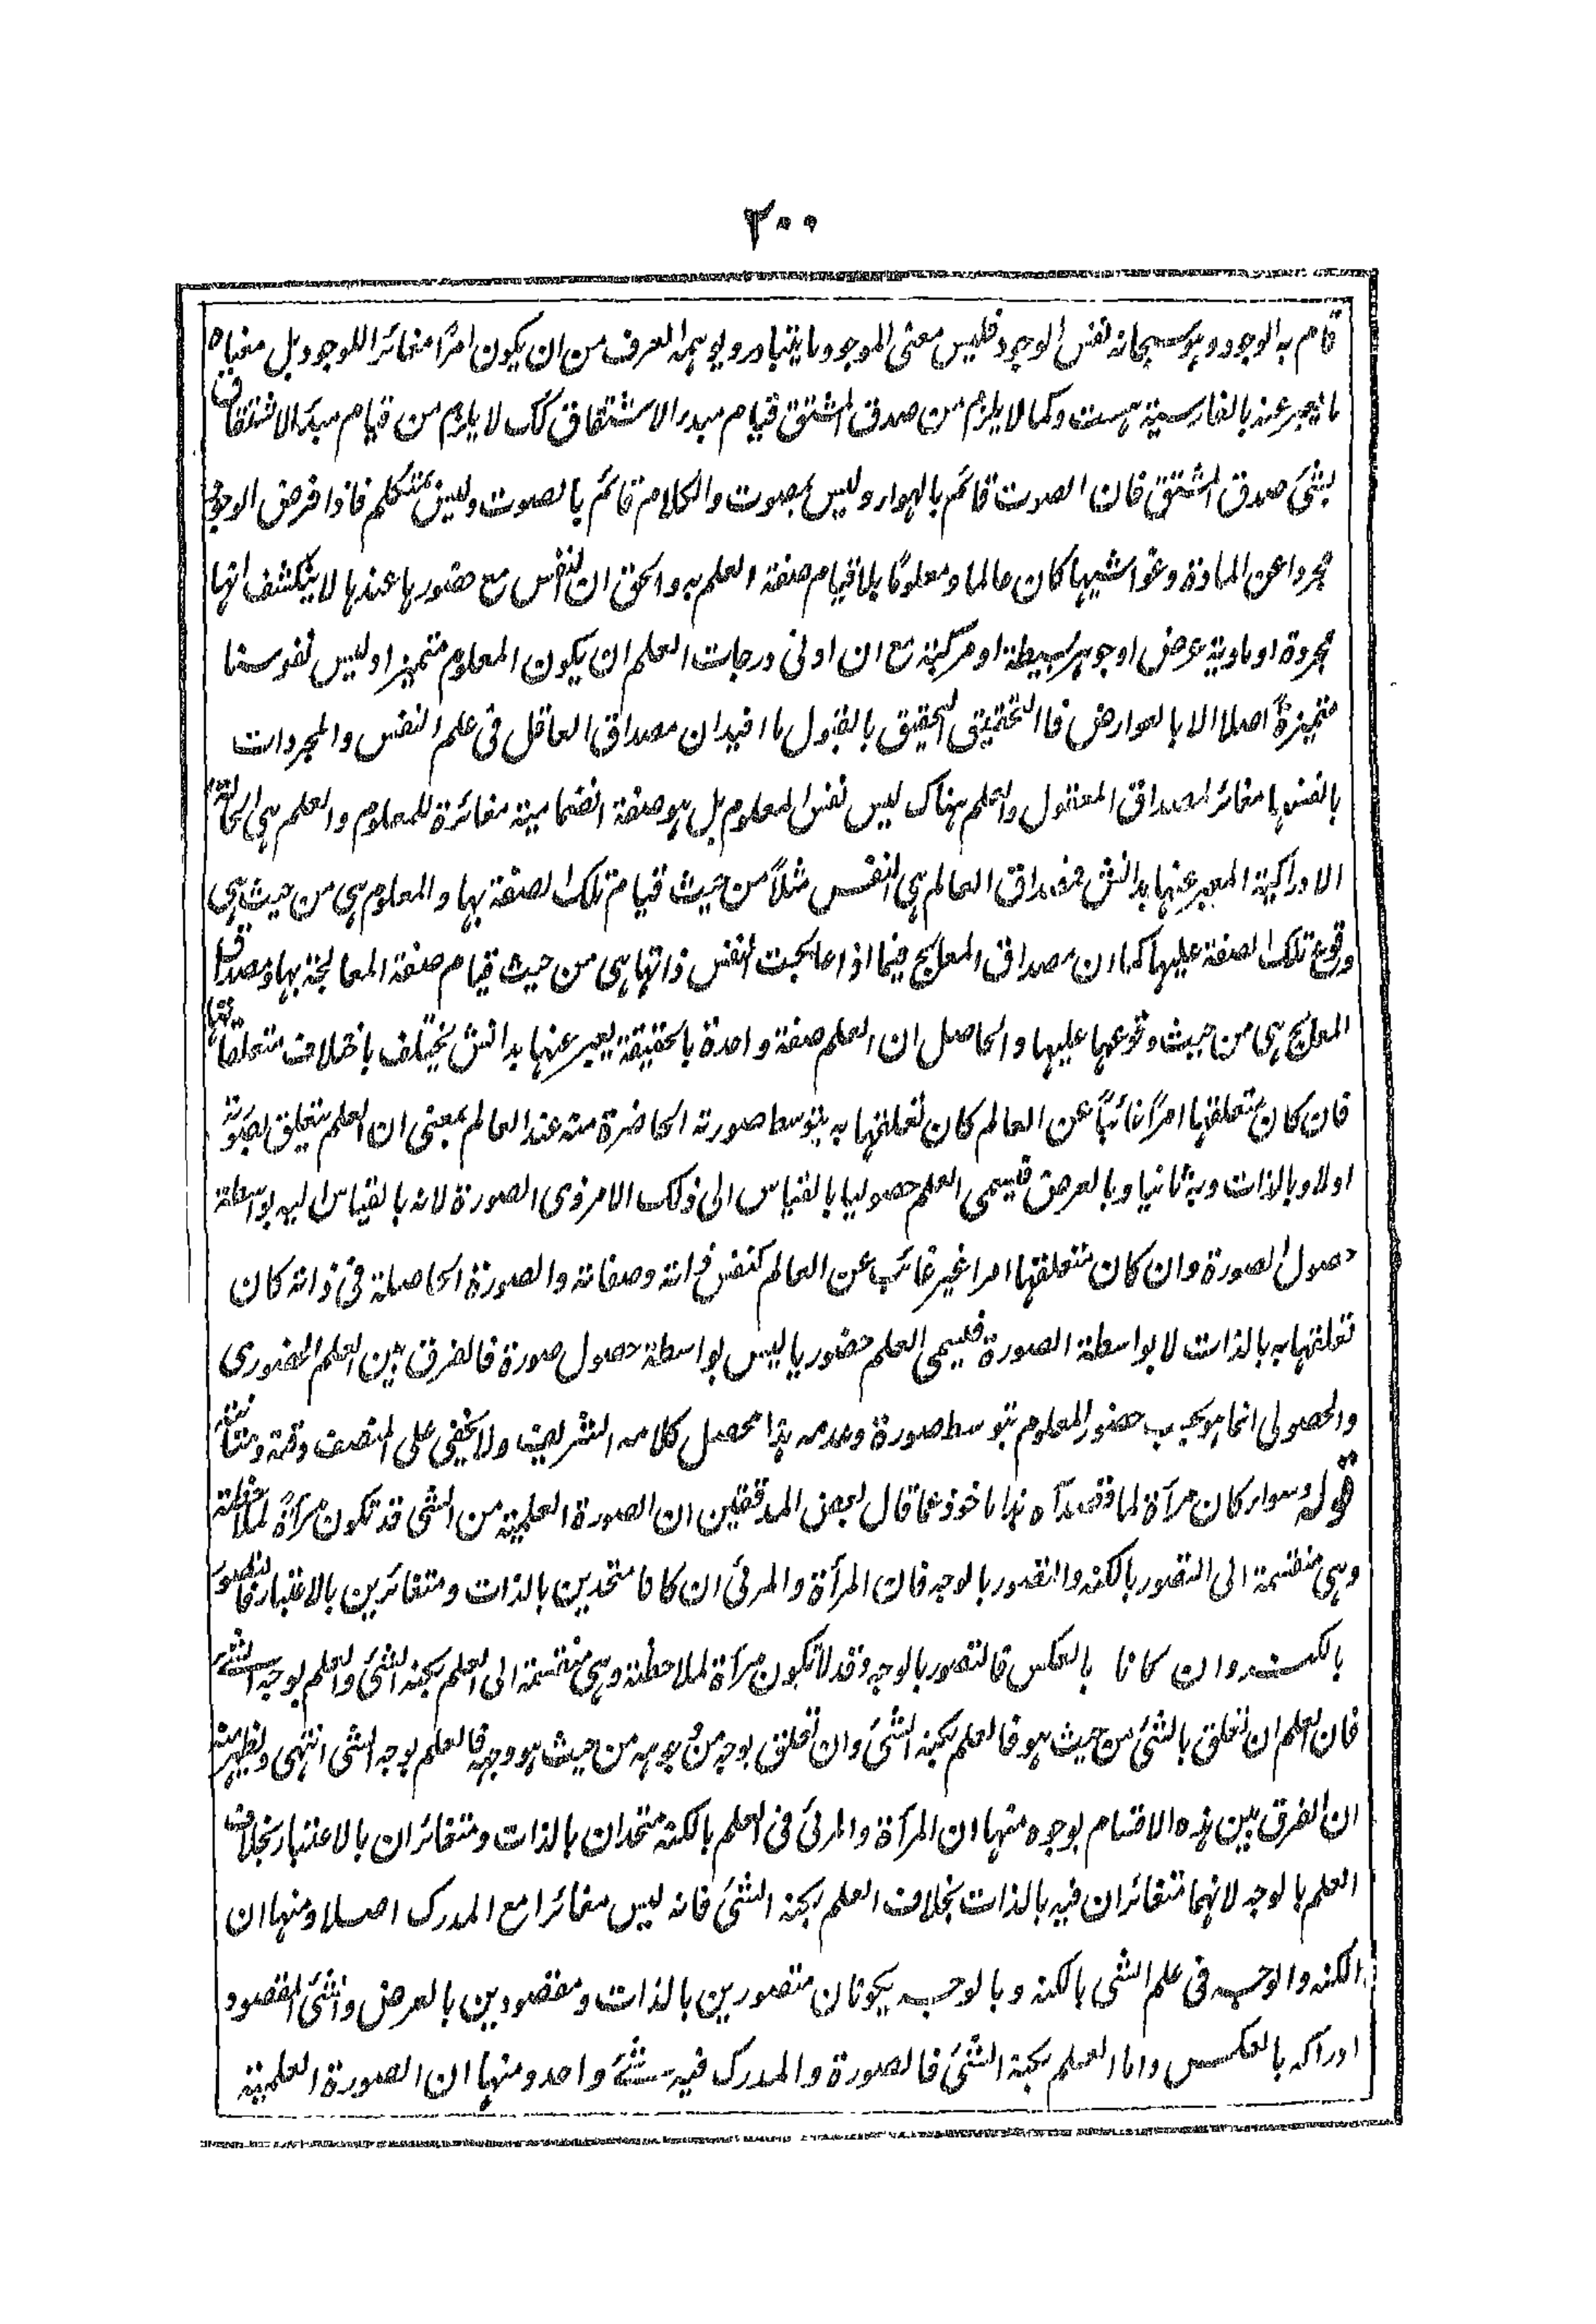 ٣٠٠
قام به الوجود وهو سبحانه نفس الوجود فليس معنى الموجود ما يتبادر ويوهمه العرف من ان يكون امرًا مغائر اللوجود بل معناه
ما يعبر عنه بالفارسية هست وكما لا يلزم من صدق المشتق قيام مبدء الاشتقاق كك لا يلزم من قيام مبدَء الاشتقاق
بشئ صدق المشتق فان الصوت قائم بالهواء وليس بصوت والكلام قائم بالصوت وليس بمتكلم فاذا فرض الوجود
مجردا عن المادة وغواشيها كان عالما ومعلومًا بلا قيام صفة العلم به والحق ان النفس مع حضورها عندها لا ينكشف انها
مجردة او مادية عرض او جوهر بسيطة او مركبة مع ان اولى درجات العلم ان يكون المعلوم متميزا وليس نفوسنا
متميزة اصلا الا بالعوارض فالتحقيق الحقيق بالقبول ما افيد ان مصداق العاقل في علم النفس والمجردات
بانفسها مغائر لمصداق المعقول والعلم هناك ليس نفس المعلوم بل هو صفة انضمامية مغائرة للمعلوم والعلم هي الحالة
الادراكية المعبر عنها بدانش فمصداق العالم هي النفس مثلاً من حيث قيام تلك الصفة بها والمعلوم هي من حيث هي
وقوع تلك الصفة عليها كما ان مصداق المعالج فيما اذا عالجت النفس ذاتها هي من حيث قيام صفة المعالجة بها ومصداق
المعالج هي من حيث وقوعها عليها والحاصل ان العلم صفة واحدة بالحقيقة يعبر عنها بدانش يختلف باختلاف متعلقاتها
فان كان متعلقها امرًا غائبًا عن العالم كان تعلقها به بتوسط صورته الحاضرة منه عند العالم بمعنى ان العلم يتعلق بصورته
اولا وبالذات وبه ثانيا وبالعرض فيسمى العلم حصوليا بالقياس الى ذلك الامر ذى الصورة لانه بالقياس اليه بواسطة
حصول الصورة وان كان متعلقها امرا غير غائب عن العالم كنفس ذاته وصفاته والصورة الحاصلة في ذاته كان
تعلقها به بالذات لا بواسطة الصورة فيسمى العلم حضوريا ليس بواسطة حصول صورة فالفرق بين العلم الحضورى
والحصولى انما هو بحسب حضور المعلوم بتوسط صورة وعدمه هذا محصل كلامه الشريف ولا يخفى على المنصف دقته ومتانته
قوله وسواء كان مرآة لما قصد آه هذا ماخوذ مما قال بعض المدققين ان الصورة العلمية من الشئ قد تكون مرآةً لملاحظته
وهى منقسمة الى التصور بالكنه والتصور بالوجه فان المرآة والمرئى ان كانا متحدين بالذات ومتغائرين بالاعتبار فالتصور
بالكنه وان كانا بالعكس فالتصور بالوجه وقد لا تكون مرآة لملاحظته وهى منقسمة الى العلم بكنه الشئ والعلم بوجه الشئ
فان العلم ان تعلق بالشئ من حيث هو فالعلم بكنه الشئ وان تعلق بوجه من وجوهه من حيث هو وجهه فالعلم بوجه الشئ انتهى ويظهر منه
ان الفرق بين هذه الاقسام بوجوه منها ان المرآة والمرئى فى العلم بالكنه متحدان بالذات ومتغائران بالاعتبار بخلاف
العلم بالوجه لانهما متغائران فيه بالذات بخلاف العلم بكنه الشئ فانه ليس مغائرا مع المدرك اصلا ومنها ان
الكنه والوجه فى علم الشئ بالكنه وبالوجه يكونان متصورين بالذات ومقصودين بالعرض والشئ المقصود
ادراكه بالعكس واما العلم بكنه الشئ فالصورة والمدرك فيه شئ واحد ومنها ان الصورة العلمية